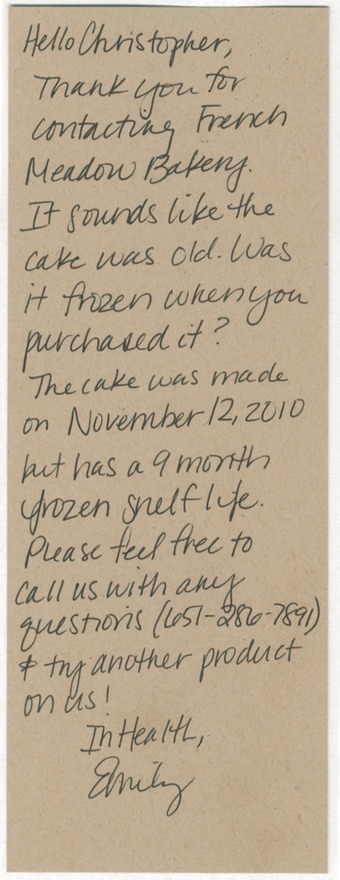 Hello Christopher,
Thank you for
contacting French
Meadow Bakery.
It sounds like the
cake was old. Was
it frozen when you
purchased it?
The cake was made
on November 12, 2010
but has a 9 month
frozen shelf life.
Please feel free to
call us with any
questions (651-286-7891)
& try another product
on us!
In Health,
Emily